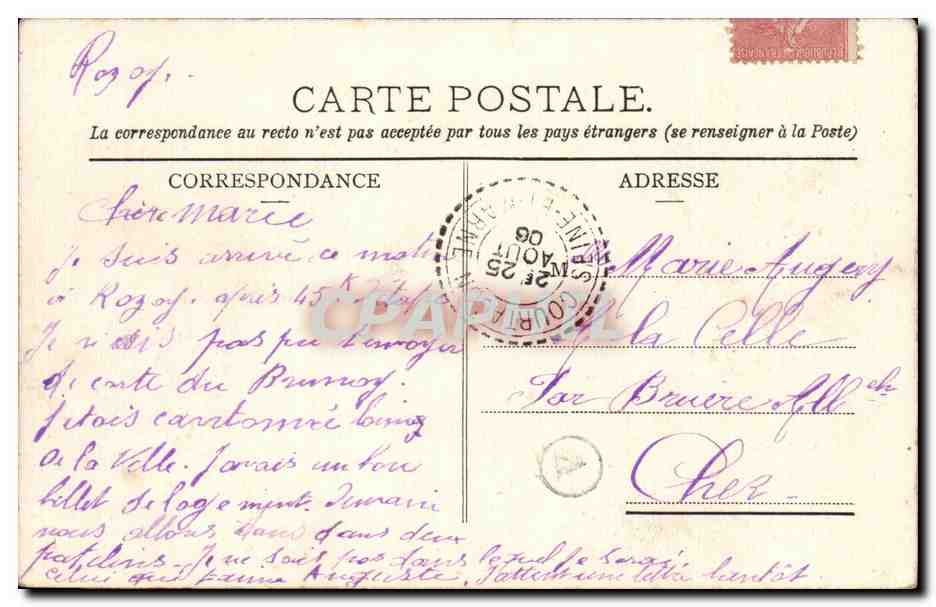 Rozoy.
RÉPUBLIQUE FRANÇAISE
CARTE POSTALE.
La correspondance au recto n'est pas acceptée par tous les pays étrangers (se renseigner à la Poste)
CORRESPONDANCE
Chère Marie
Je suis arrivé ce matin
à Rozoy. après 45 K
Je n'ais pas pu t'envoyer
de carte du Brunoy.
J'etais cantonné loing
de la Ville. J'avais un bon
billet de logement. Demain
nous allons dans deux
patelins. Je ne sais pas dans lequel je serai
celui qui t'aime Auguste, J'attend une lettre bientôt.
ADRESSE
COURTA
SEINE-ET-MARNE
2E
25
AOUT
06
M Marie Augery
A la Celle
Par Bruère All ch
Cher
A
CPARTAL